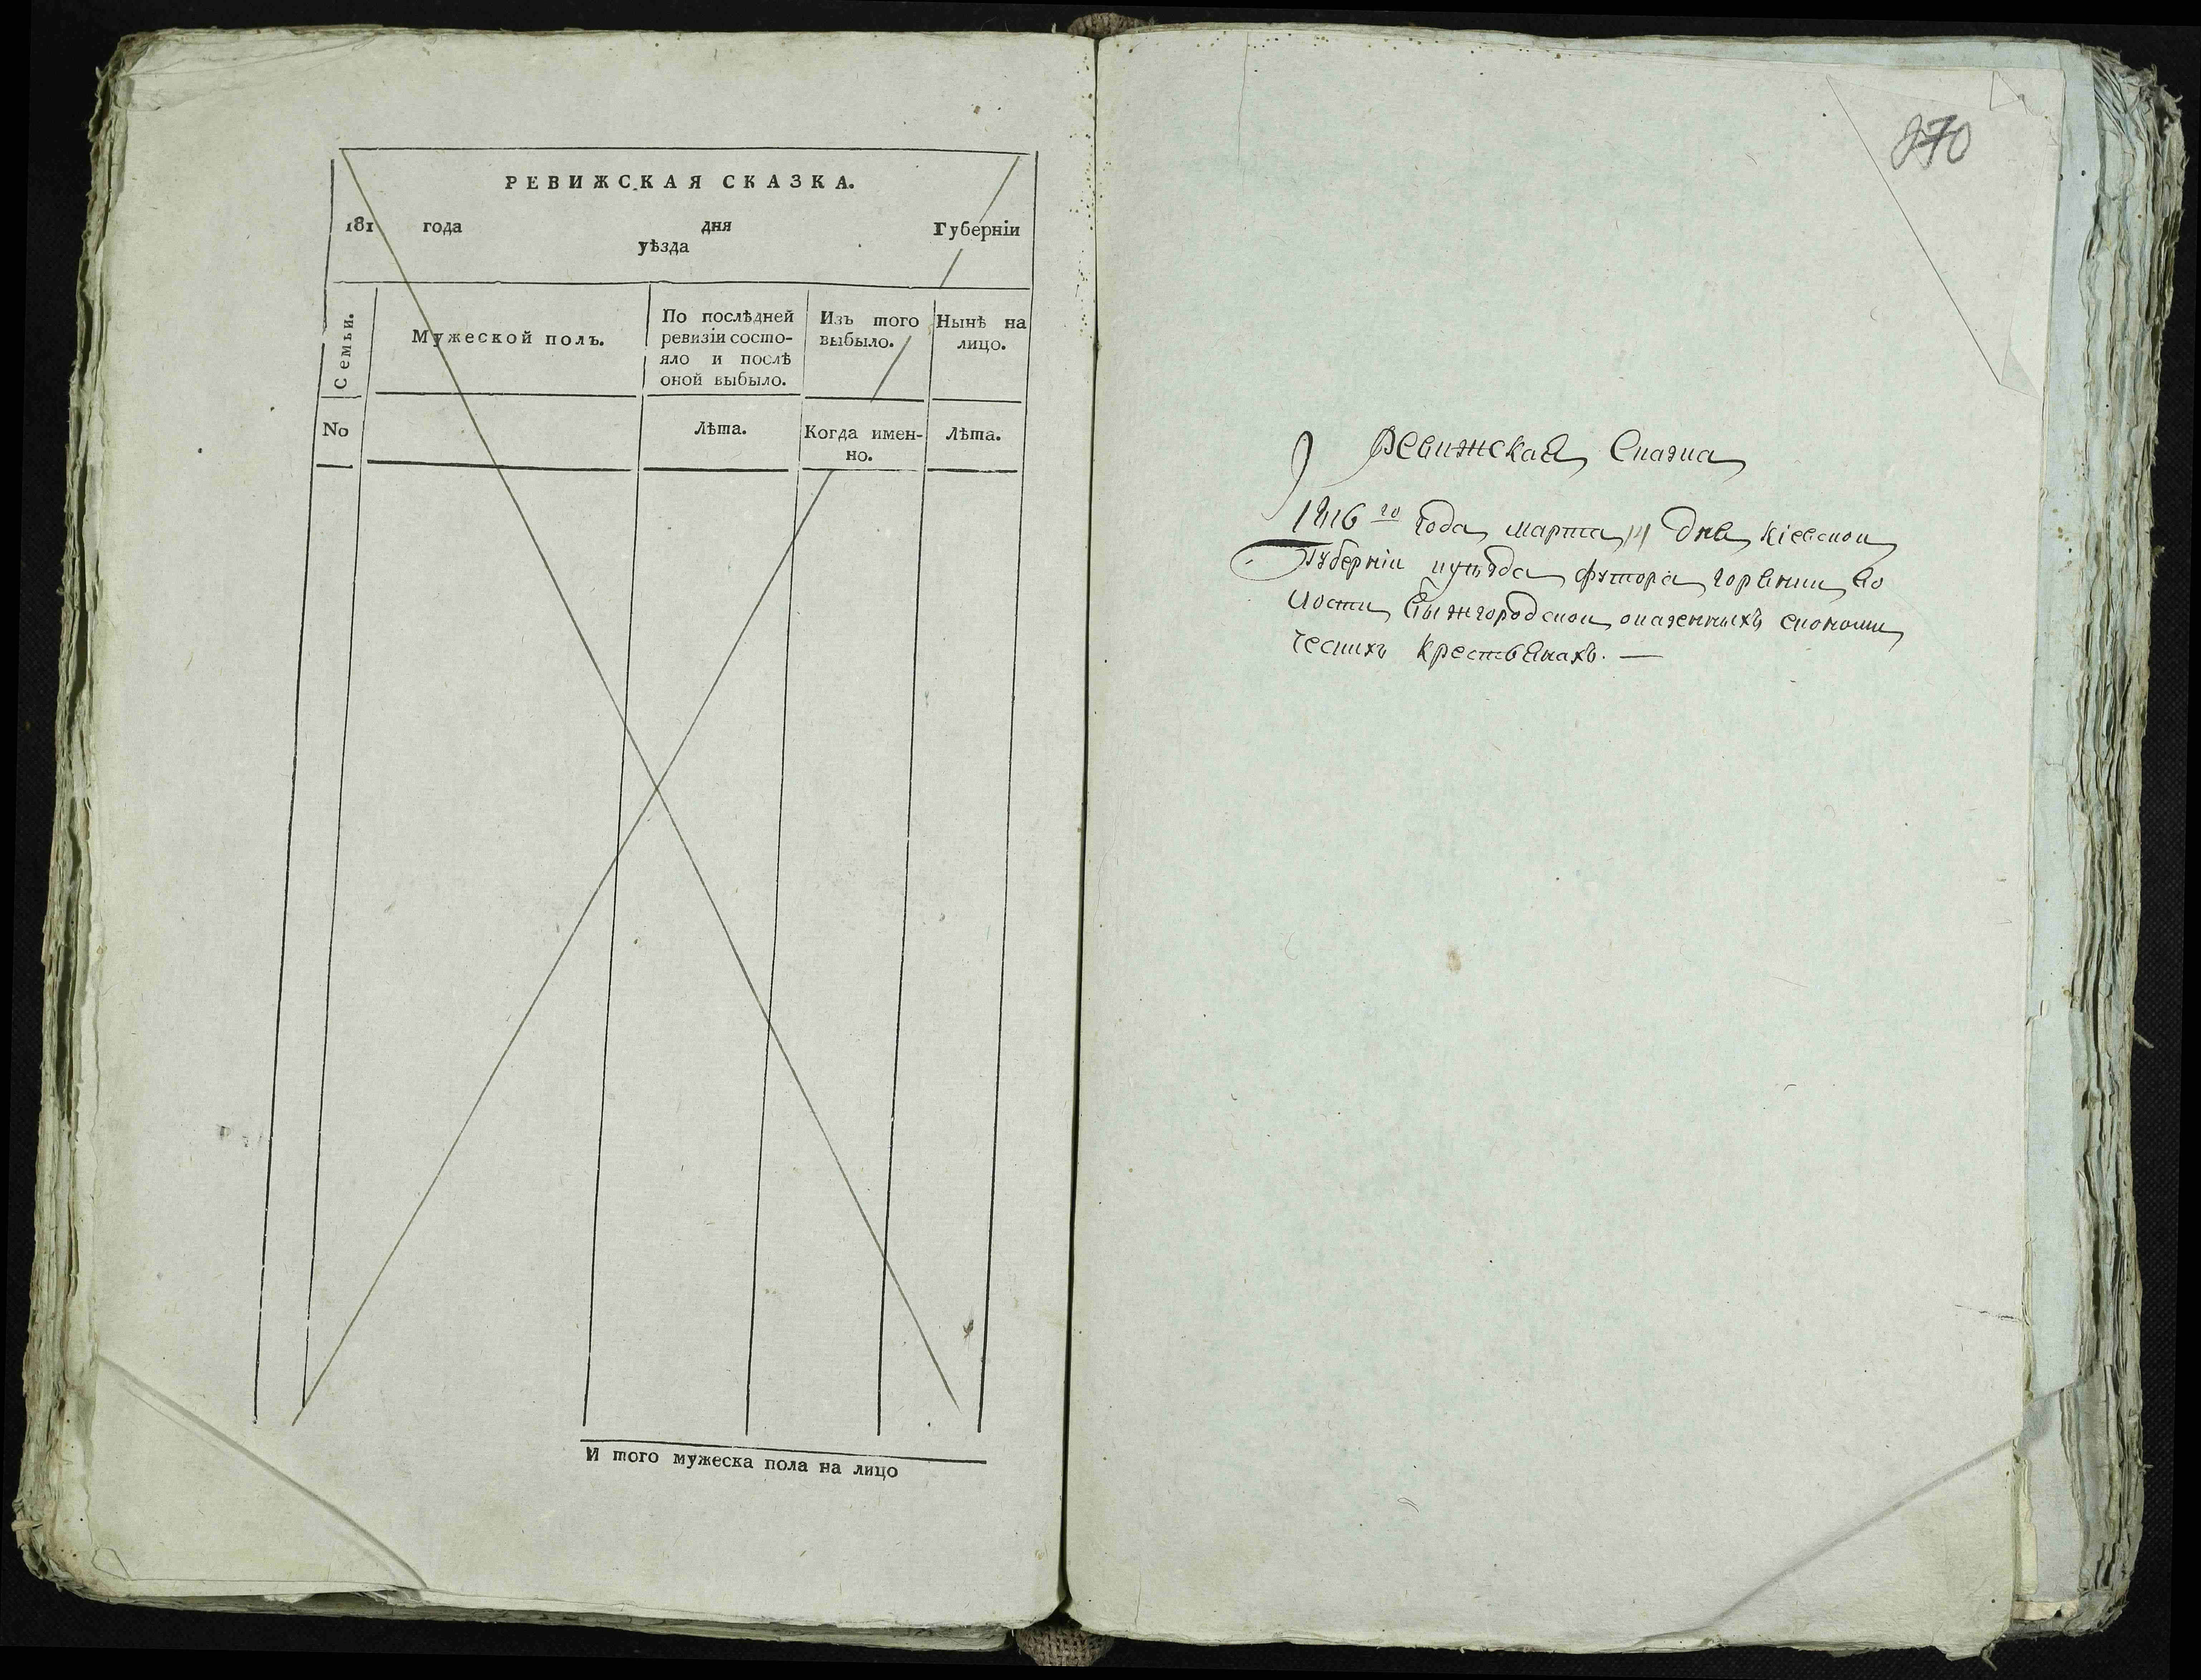 РЕВИЖСКАЯ СКАЗКА.
181 года дня Губерніи
уѣзда
Семьи.
Мужеской полъ.
По послѣдней
ревизіи состо-
яло и послѣ
оной выбыло.
Изъ того
выбыло.
Нынѣ на
лицо.
No
Лѣта.
Когда имен-
но.
Лѣта.
И того мужеска пола на лицо
270
Ревижская Сказка
1816го года марта дня Кіевской
Губерніи иуѣзда футора горѣнки во
лости Вышгородской оказенныхъ економи
ческихъ крестьянахъ. —